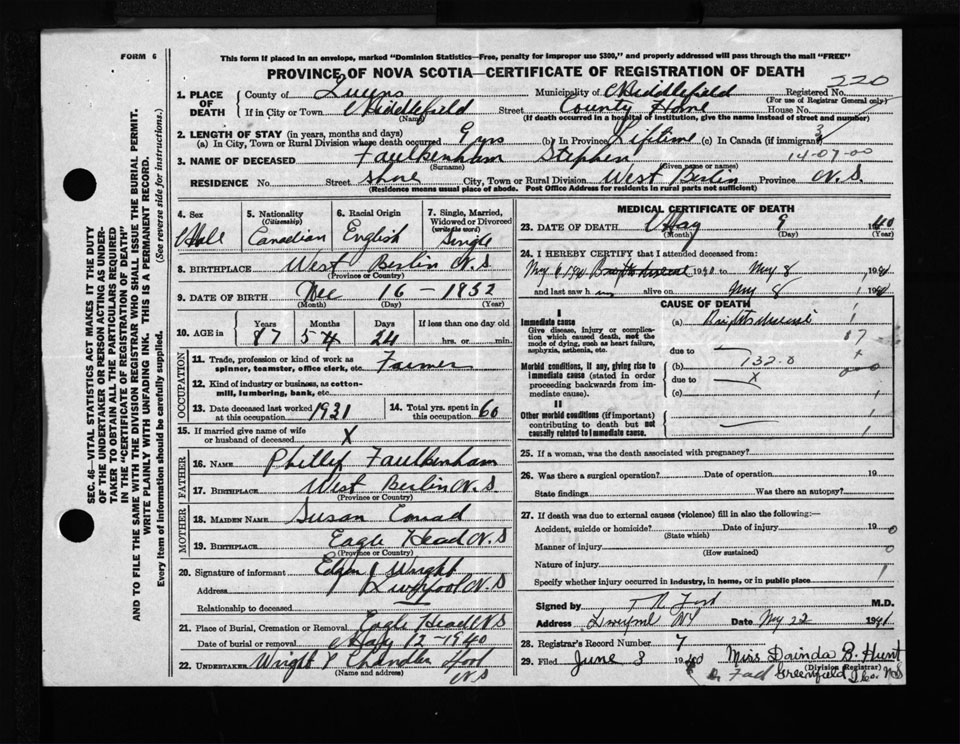 FORM 6
This form if placed in an envelope, marked "Dominion Statistics—Free, penalty for improper use $300," and properly addressed will pass through the mail "FREE"
PROVINCE OF NOVA SCOTIA—CERTIFICATE OF REGISTRATION OF DEATH
220
1. PLACE OF DEATH County of Queens Municipality of Middlefield Registered No.
(For use of Registrar General only)
If in City or Town Middlefield Street County Home House No.
(Name) (If death occurred in a hospital or institution, give the name instead of street and number)
2. LENGTH OF STAY (in years, months and days)
(a) In City, Town or Rural Division where death occurred 9 yrs (b) In Province Lifetime (c) In Canada (if immigrant)
3. NAME OF DECEASED Faulkenham Stephen 14-07-00
(Surname) (Given name or names)
RESIDENCE No. Street Shore City, Town or Rural Division West Berlin Province N.S.
(Residence means usual place of abode. Post Office Address for residents in rural parts not sufficient)
4. Sex Male
5. Nationality (Citizenship) Canadian
6. Racial Origin English
7. Single, Married, Widowed or Divorced (write the word) Single
8. BIRTHPLACE West Berlin N.S
(Province or Country)
9. DATE OF BIRTH Dec 16 - 1852
(Month) (Day) (Year)
10. AGE in Years Months Days If less than one day old
87 24 hrs. or min.
11. Trade, profession or kind of work as spinner, teamster, office clerk, etc. Farmer
12. Kind of industry or business, as cotton-mill, lumbering, bank, etc.
13. Date deceased last worked at this occupation 1931
14. Total yrs. spent in this occupation 60
OCCUPATION
15. If married give name of wife or husband of deceased X
FATHER
16. NAME Phillip Faulkenham
17. BIRTHPLACE West Berlin N.S
(Province or Country)
MOTHER
18. MAIDEN NAME Susan Conrad
19. BIRTHPLACE Eagle Head N.S
(Province or Country)
20. Signature of informant Wright
Address Liverpool N.S
Relationship to deceased
21. Place of Burial, Cremation or Removal Eagle Head N.S
Date of burial or removal May 12-1940
22. UNDERTAKER Wright Chandler
(Name and address) N.S
MEDICAL CERTIFICATE OF DEATH
23. DATE OF DEATH May 9
(Month) (Day) (Year)
24. I HEREBY CERTIFY that I attended deceased from:
to May 8
and last saw h alive on May 8
CAUSE OF DEATH
I
Immediate cause
Give disease, injury or complication which caused death, not the mode of dying, such as heart failure, asphyxia, asthenia, etc.
(a)
due to
Morbid conditions, if any, giving rise to immediate cause (stated in order proceeding backwards from immediate cause).
132.0
due to X
(c)
II
Other morbid conditions (if important) contributing to death but not causally related to immediate cause.
25. If a woman, was the death associated with pregnancy?
26. Was there a surgical operation? Date of operation 19
State findings Was there an autopsy?
27. If death was due to external causes (violence) fill in also the following:—
Accident, suicide or homicide? Date of injury 19
(State which)
Manner of injury
(How sustained)
Nature of injury
Specify whether injury occurred in industry, in home, or in public place
Signed by M.D.
Address Date May 22
28. Registrar's Record Number 7
29. Filed June 3 Miss Dorinda B. Hunt
(Division Registrar)
Greenfield N.S
SEC. 46—VITAL STATISTICS ACT MAKES IT THE DUTY
OF THE UNDERTAKER OR PERSON ACTING AS UNDER-
TAKER TO OBTAIN ALL THE PARTICULARS REQUIRED
IN THE "CERTIFICATE OF REGISTRATION OF DEATH"
AND TO FILE THE SAME WITH THE DIVISION REGISTRAR WHO SHALL ISSUE THE BURIAL PERMIT.
WRITE PLAINLY WITH UNFADING INK. THIS IS A PERMANENT RECORD.
Every item of information should be carefully supplied. (See reverse side for instructions.)